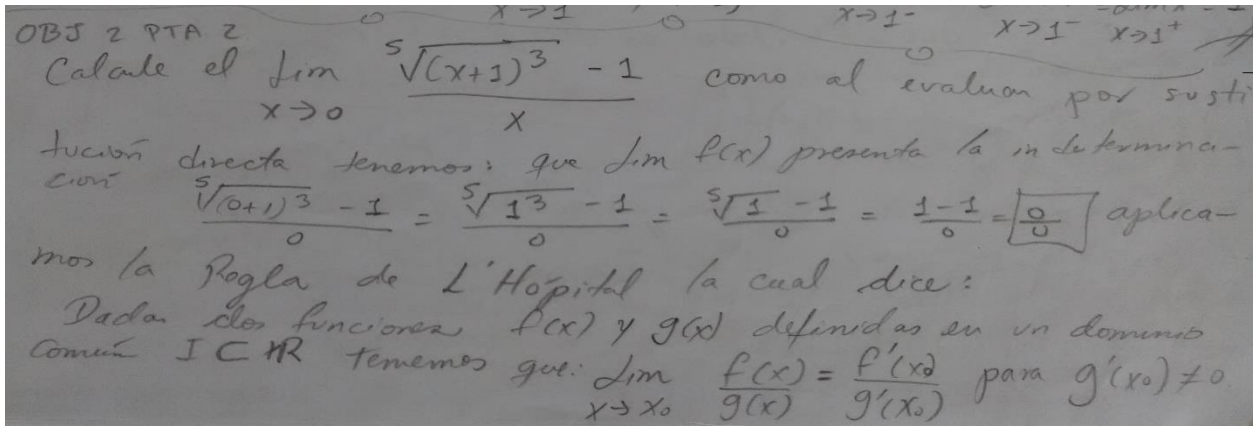 x→1 x→1⁻ x→1⁻ x→1⁺
OBJ 2 PTA 2
Calcule el lim x→0 (⁵√((x+1)³) - 1)/x como al evaluar por susti
tución directa tenemos: que lim f(x) presenta la indetermina-
ción (⁵√((0+1)³) - 1)/0 = (⁵√(1³) - 1)/0 = (⁵√1 - 1)/0 = (1-1)/0 = 0/0 aplica-
mos la Regla de L'Hôpital la cual dice:
Dadas dos funciones f(x) y g(x) definidas en un dominio
común I ⊂ ℝ tenemos que: lim x→x₀ f(x)/g(x) = f'(x₀)/g'(x₀) para g'(x₀) ≠ 0.